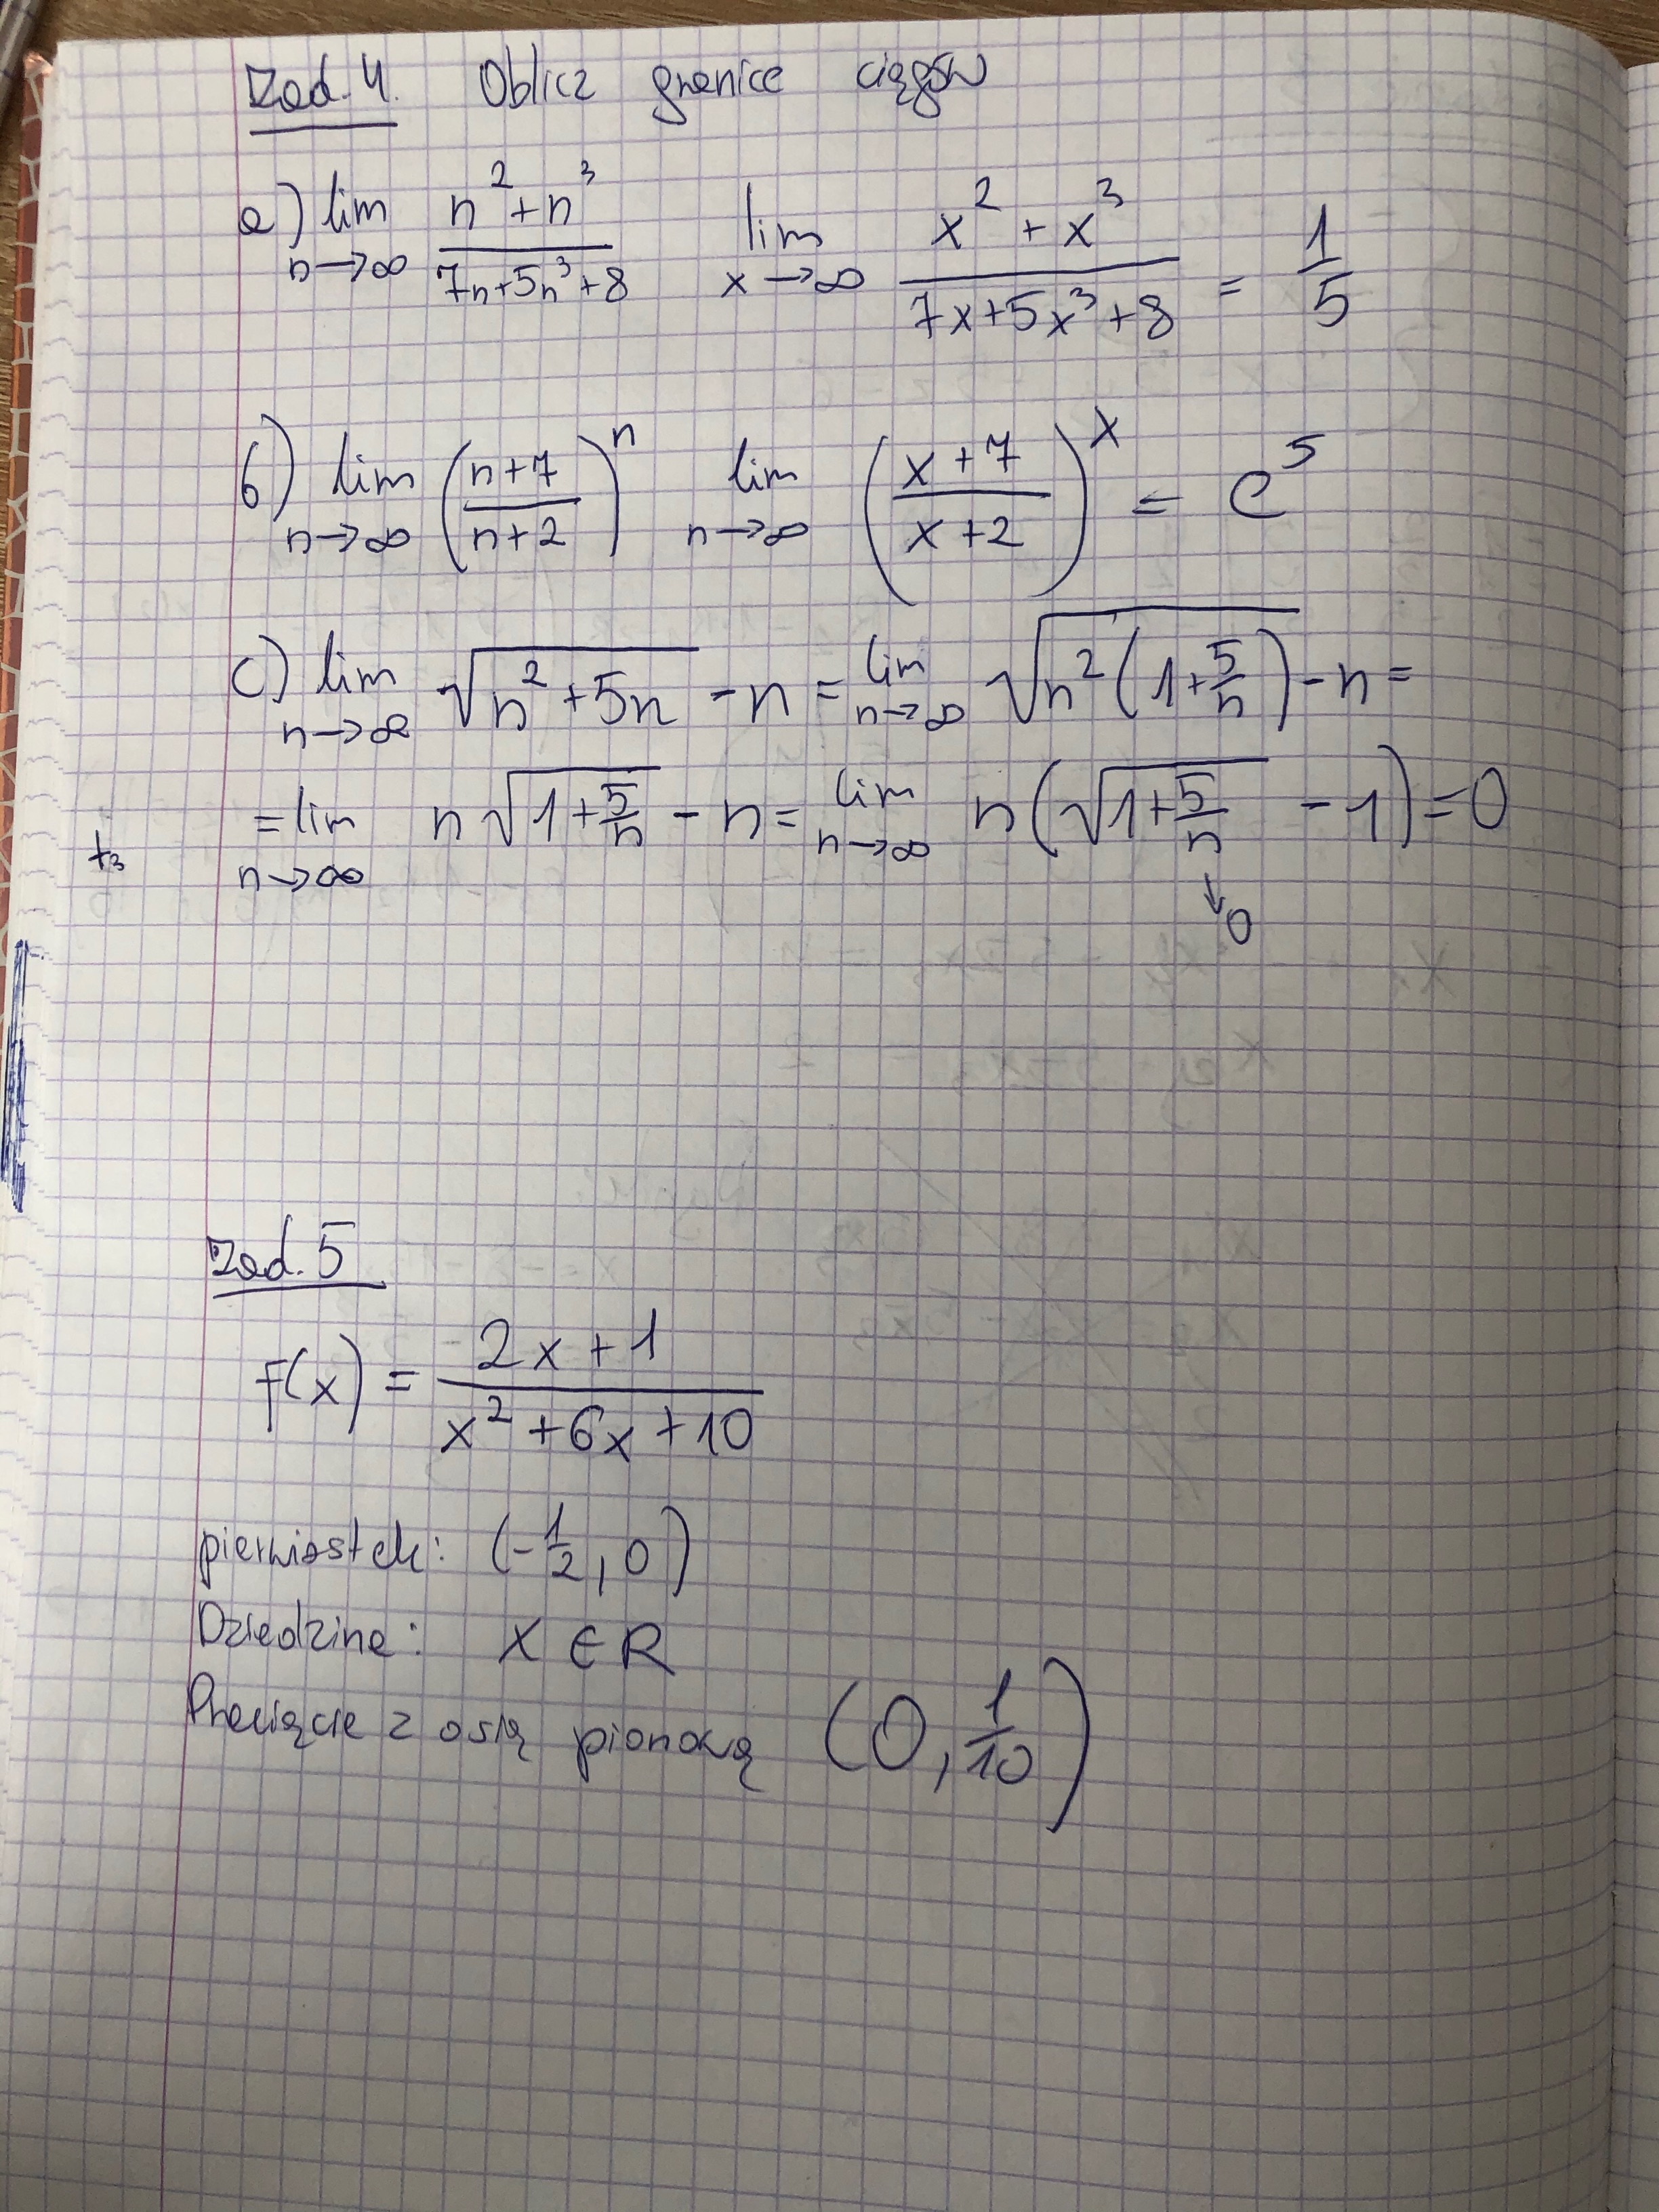 Zad. 4. Oblicz granice ciągów
a) lim n→∞ (n² + n³)/(7n+5n³+8) lim x→∞ (x² + x³)/(7x+5x³+8) = 1/5
b) lim n→∞ ((n+7)/(n+2))ⁿ lim n→∞ ((x+7)/(x+2))ˣ = e⁵
c) lim n→∞ √(n²+5n) - n = lim n→∞ √(n²(1+5/n)) - n =
= lim n→∞ n√(1+5/n) - n = lim n→∞ n(√(1+5/n) - 1) = 0
↓0
Zad. 5
f(x) = (2x+1)/(x²+6x+10)
pierwiastek: (-1/2, 0)
Dziedzina: x ∈ R
Przecięcie z osią pionową (0, 1/10)